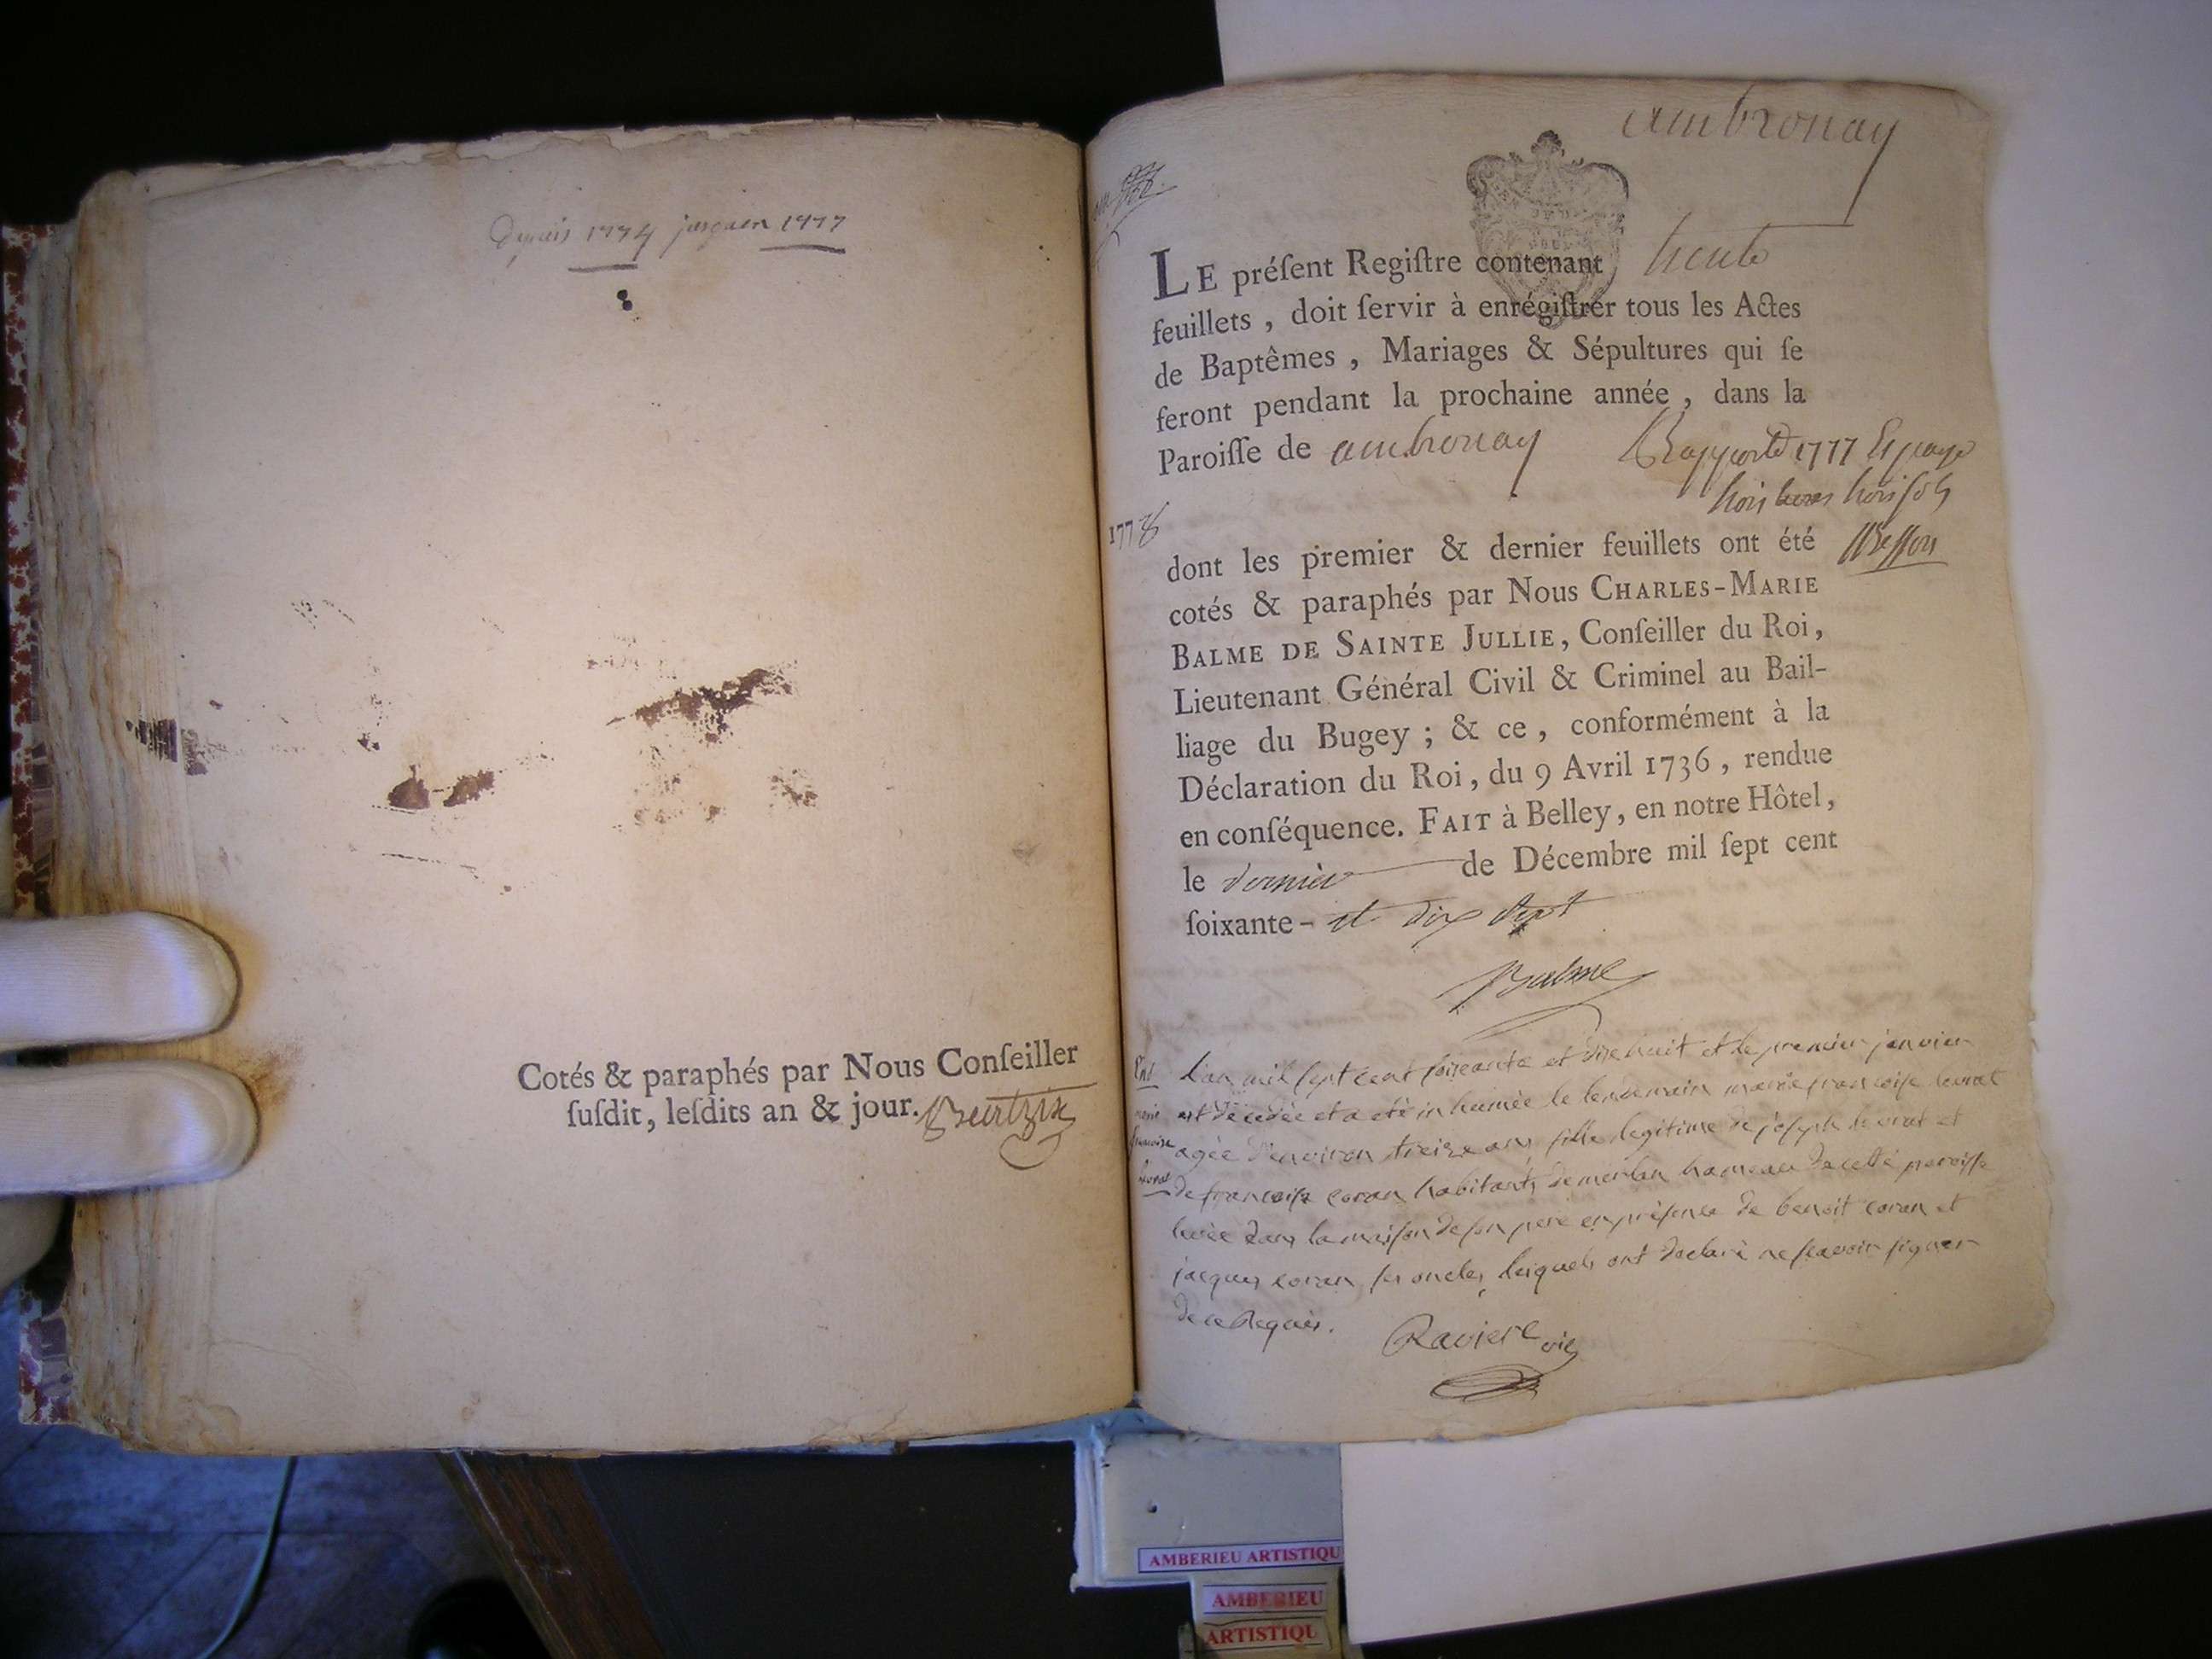 Depuis 1774 jusquen 1777
Cotés & paraphés par Nous Conſeiller
ſuſdit, leſdits an & jour.
ambronay
LE préſent Regiſtre contenant trente
feuillets, doit ſervir à enrégiſtrer tous les Actes
de Baptêmes, Mariages & Sépultures qui ſe
feront pendant la prochaine année, dans la
Paroiſſe de ambronay
Rapporté 1777 Et payé
trois livres trois ſols
1778
dont les premier & dernier feuillets ont été
cotés & paraphés par Nous CHARLES-MARIE
BALME DE SAINTE JULLIE, Conſeiller du Roi,
Lieutenant Général Civil & Criminel au Bail-
liage du Bugey; & ce, conformément à la
Déclaration du Roi, du 9 Avril 1736, rendue
en conſéquence. FAIT à Belley, en notre Hôtel,
le dernier de Décembre mil ſept cent
ſoixante- et dix ſept
Balme
L'an mil ſept cent ſoixante et dixhuit et le premier janvier
est décedée et a eté inhumée le lendemain marie francoiſe
agée d'environ treize ans fille legitime de joſeph et
de francoiſe coran habitants de merlan hameau de cette paroiſſe
levée dans la maiſon de ſon pere en préſence de benoit coran et
jacques coran ſes oncles leſquels ont declaré ne ſcavoir ſigner
de ce Requis.
Raviere vic
AMBERIEU ARTISTIQU
AMBERIEU
ARTISTIQU